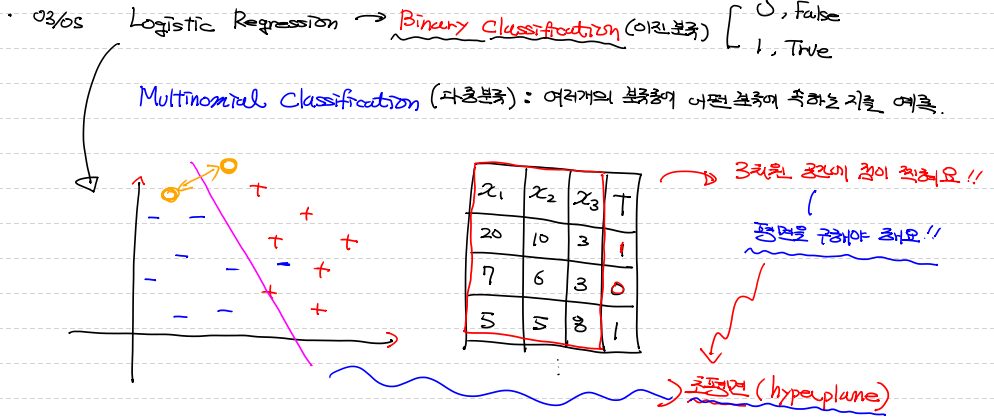 · 03/05 Logistic Regression → Binary Classification (이진분류) [ 0, False
1, True
Multinomial Classification (다중분류) : 여러개의 분류중에 어떤 분류에 속하는지를 예측.
x₁ x₂ x₃ T
20 10 3 1
7 6 3 0
5 5 8 1
⋮
3차원 공간에 점이 찍혀요!!
평면을 구해야 해요!!
초평면 (hyperplane)